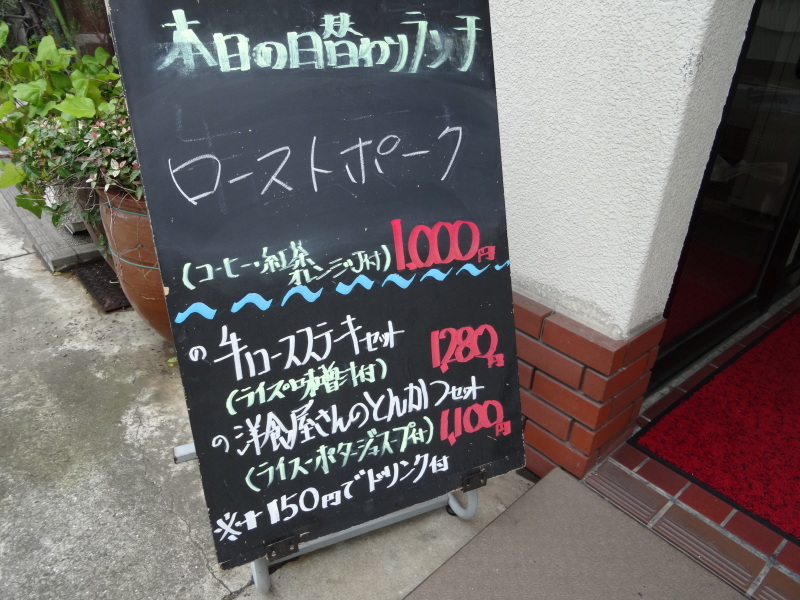 本日の日替わりランチ
ローストポーク
(コーヒー・紅茶
オレンジJ付) 1,000円
の牛ロースステーキセット 1280円
(ライス味噌汁付)
の洋食屋さんのとんかつセット
(ライス・ポタージュスープ付) 1,100円
※+150円でドリンク付